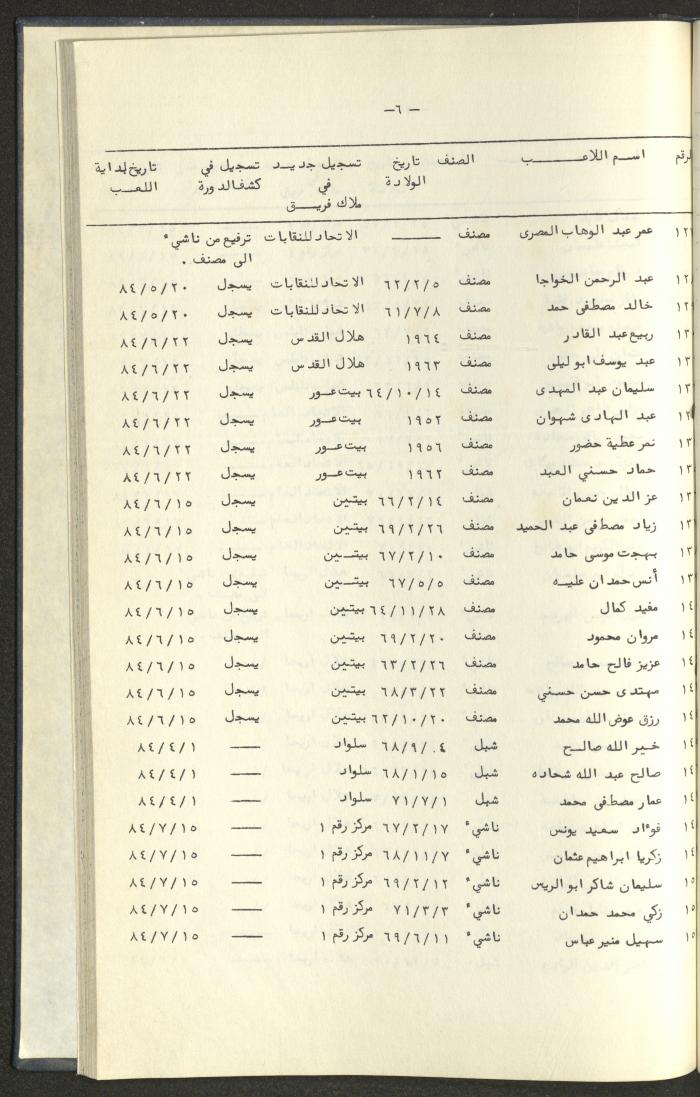 — ٦ —
الرقم اسم اللاعب الصنف تاريخ الولادة تسجيل جديد في ملاك فريق تسجيل في كشف الدورة تاريخ بداية اللعب
عمر عبد الوهاب المصرى مصنف —— الاتحاد للنقابات ترفيع من ناشيء
الى مصنف .
عبد الرحمن الخواجا مصنف ٦٢/٢/٥ الاتحاد للنقابات يسجل ٨٤/٥/٢٠
خالد مصطفى حمد مصنف ٦١/٧/٨ الاتحاد للنقابات يسجل ٨٤/٥/٢٠
ربيع عبد القادر مصنف ١٩٦٤ هلال القدس يسجل ٨٤/٦/٢٢
عبد يوسف ابو ليلى مصنف ١٩٦٣ هلال القدس يسجل ٨٤/٦/٢٢
سليمان عبد المهدى مصنف ٦٤/١٠/١٤ بيت عور يسجل ٨٤/٦/٢٢
عبد الهادى شهوان مصنف ١٩٥٢ بيت عور يسجل ٨٤/٦/٢٢
نمر عطية حضور مصنف ١٩٥٦ بيت عور يسجل ٨٤/٦/٢٢
حماد حسني العبد مصنف ١٩٦٢ بيت عور يسجل ٨٤/٦/٢٢
عز الدين نعمان مصنف ٦٦/٢/١٤ بيتين يسجل ٨٤/٦/١٥
زياد مصطفى عبد الحميد مصنف ٦٩/٢/٢٦ بيتين يسجل ٨٤/٦/١٥
بهجت موسى حامد مصنف ٦٧/٢/١٠ بيتين يسجل ٨٤/٦/١٥
أنس حمدان عليه مصنف ٦٧/٥/٥ بيتين يسجل ٨٤/٦/١٥
مفيد كمال مصنف ٦٤/١١/٢٨ بيتين يسجل ٨٤/٦/١٥
مروان محمود مصنف ٦٩/٢/٢٠ بيتين يسجل ٨٤/٦/١٥
عزيز فالح حامد مصنف ٦٣/٢/٢٦ بيتين يسجل ٨٤/٦/١٥
مهتدى حسن حسني مصنف ٦٨/٣/٢٢ بيتين يسجل ٨٤/٦/١٥
رزق عوض الله محمد مصنف ٦٢/١٠/٢٠ بيتين يسجل ٨٤/٦/١٥
خير الله صالح شبل ٦٨/٩/٠٤ سلواد —— ٨٤/٤/١
صالح عبد الله شحاده شبل ٦٨/١/١٥ سلواد —— ٨٤/٤/١
عمار مصطفى محمد شبل ٧١/٧/١ سلواد —— ٨٤/٤/١
فوءاد سعيد يونس ناشيء ٦٧/٢/١٧ مركز رقم ١ —— ٨٤/٧/١٥
زكريا ابراهيم عثمان ناشيء ٦٨/١١/٧ مركز رقم ١ —— ٨٤/٧/١٥
سليمان شاكر ابو الريس ناشيء ٦٩/٢/١٢ مركز رقم ١ —— ٨٤/٧/١٥
زكي محمد حمدان ناشيء ٧١/٣/٣ مركز رقم ١ —— ٨٤/٧/١٥
سهيل منير عباس ناشيء ٦٩/٦/١١ مركز رقم ١ —— ٨٤/٧/١٥